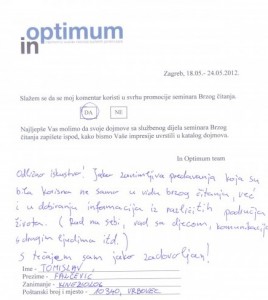 optimum
in
Zagreb, 18.05.- 24.05.2012.
Slažem se da se moj komentar koristi u svrhu promocije seminara Brzog čitanja.
DA NE
Najljepše Vas molimo da svoje dojmove sa službenog dijela seminara Brzog
čitanja zapišete ispod, kako bismo Vaše impresije uvrstili u katalog dojmova.
In Optimum team
Odlično iskustvo! Jako zanimljiva predavanja koja su
bila korisna ne samo u vidu brzog čitanja, već
i u dobivanju informacija iz različitih područja
života. (Rad na sebi, rad sa djecom, komunikacija
s drugim ljudima itd.)
S tečajem sam jako zadovoljan!
Ime - TOMISLAV
Prezime - PALČEVIĆ
Zanimanje - KINEZIOLOG
Poštanski broj i mjesto - 10340, VRBOVEC